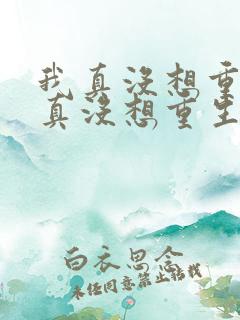 我真没想重
真没想重生
白衣思念
未经同意禁止转载